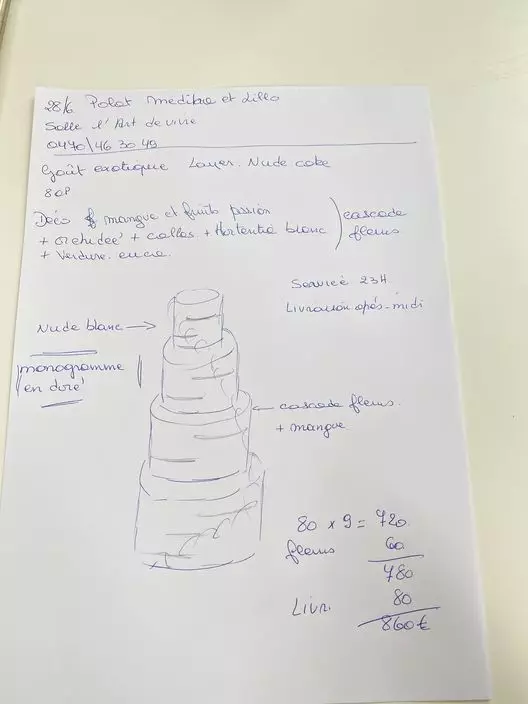 28/6 Polat Medibre et Lillo
Salle l'Art de vivre
0470/46 30 49
Goût exotique Layer. Nude cake
80P
Déco mangue et fruits passion
+ orchidée + callas + Hortentia blanc
+ Verdure.
cascade
fleurs
Service 23H
Livraison après-midi
Nude blanc
monogramme
en doré
cascade fleurs.
+ mangue
80 x 9 = 720
fleurs 60
780
Livr. 80
860€